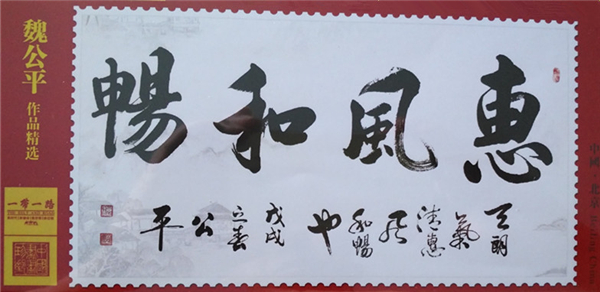 惠風和暢
天朗氣清惠風和暢也
戊戌立春
公平
魏公平
作品精选
一带一路
中國·北京